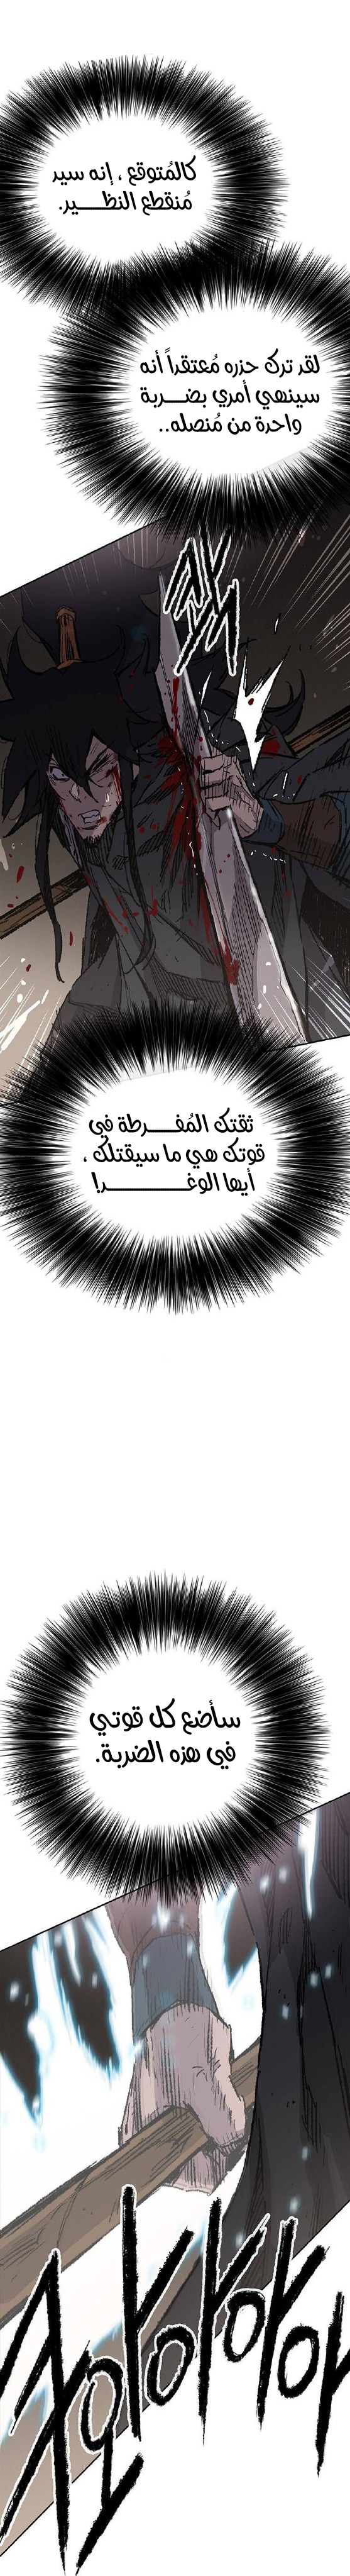 كالمُتوقع ، إنه سيد
مُنقطع النظـــير.
لقد ترك حذره مُعتقداً أنه
سينهي أمري بضـــربة
واحدة من مُنصله..
ثقتك المُفـــرطة في
قوتك هي ما سيقتلك ،
أيها الوغـــــــد!
سأضع كل قوتي
في هذه الضربة.